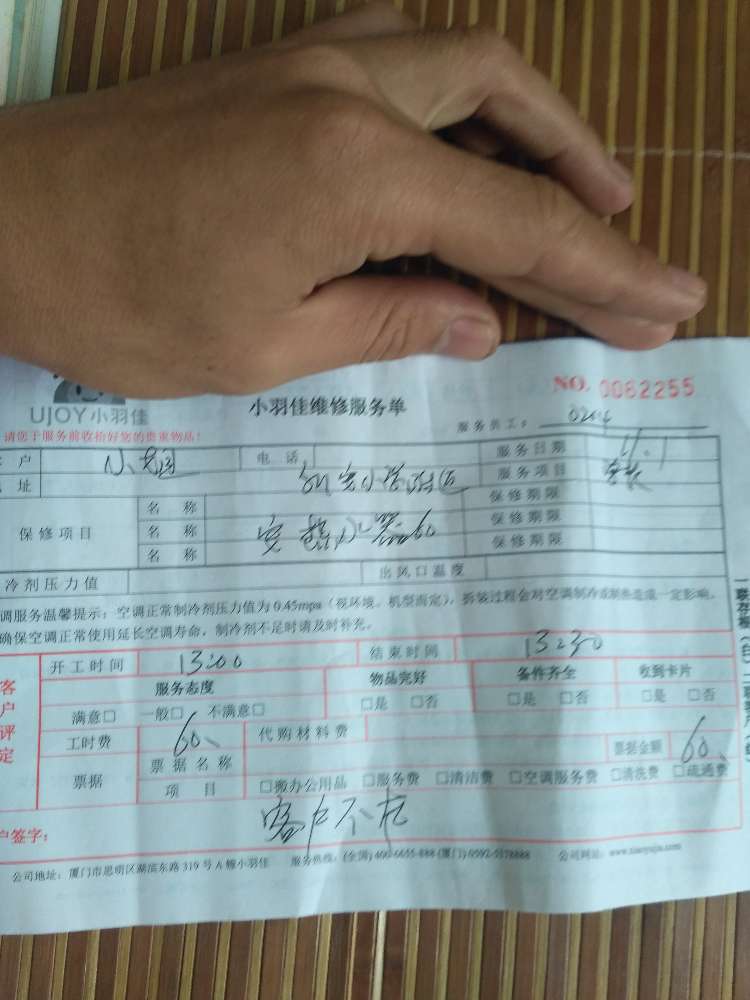 NO. 0082255
UJOY小羽佳
小羽佳维修服务单
请您于服务前收拾好您的贵重物品!
服务员工:
户 电话 服务日期 11.1
址 服务项目 安装
保修项目 名称 保修期限
名称 安 水器 60 保修期限
名称 保修期限
冷剂压力值 出风口温度
调服务温馨提示:空调正常制冷剂压力值为0.45mpa(视环境、机型而定),拆装过程会对空调制冷或制热造成一定影响,
确保空调正常使用延长空调寿命,制冷剂不足时请及时补充。
客户评定
开工时间 13:00 结束时间 13:30
服务态度 物品完好 备件齐全 收到卡片
满意□ 一般□ 不满意□ □是 □否 □是 □否 □是 □否
工时费 60 代购材料费
票据 票据名称 票据金额 60
项目 □搬办公用品 □服务费 □清洁费 □空调服务费 □清洗费 □疏通费
户签字: 客户不在
公司地址:厦门市思明区湖滨东路319号A幢小羽佳 服务热线:(全国)400-6655-888 (厦门)0592-5178888 公司网址:www.xiaoyujia.com